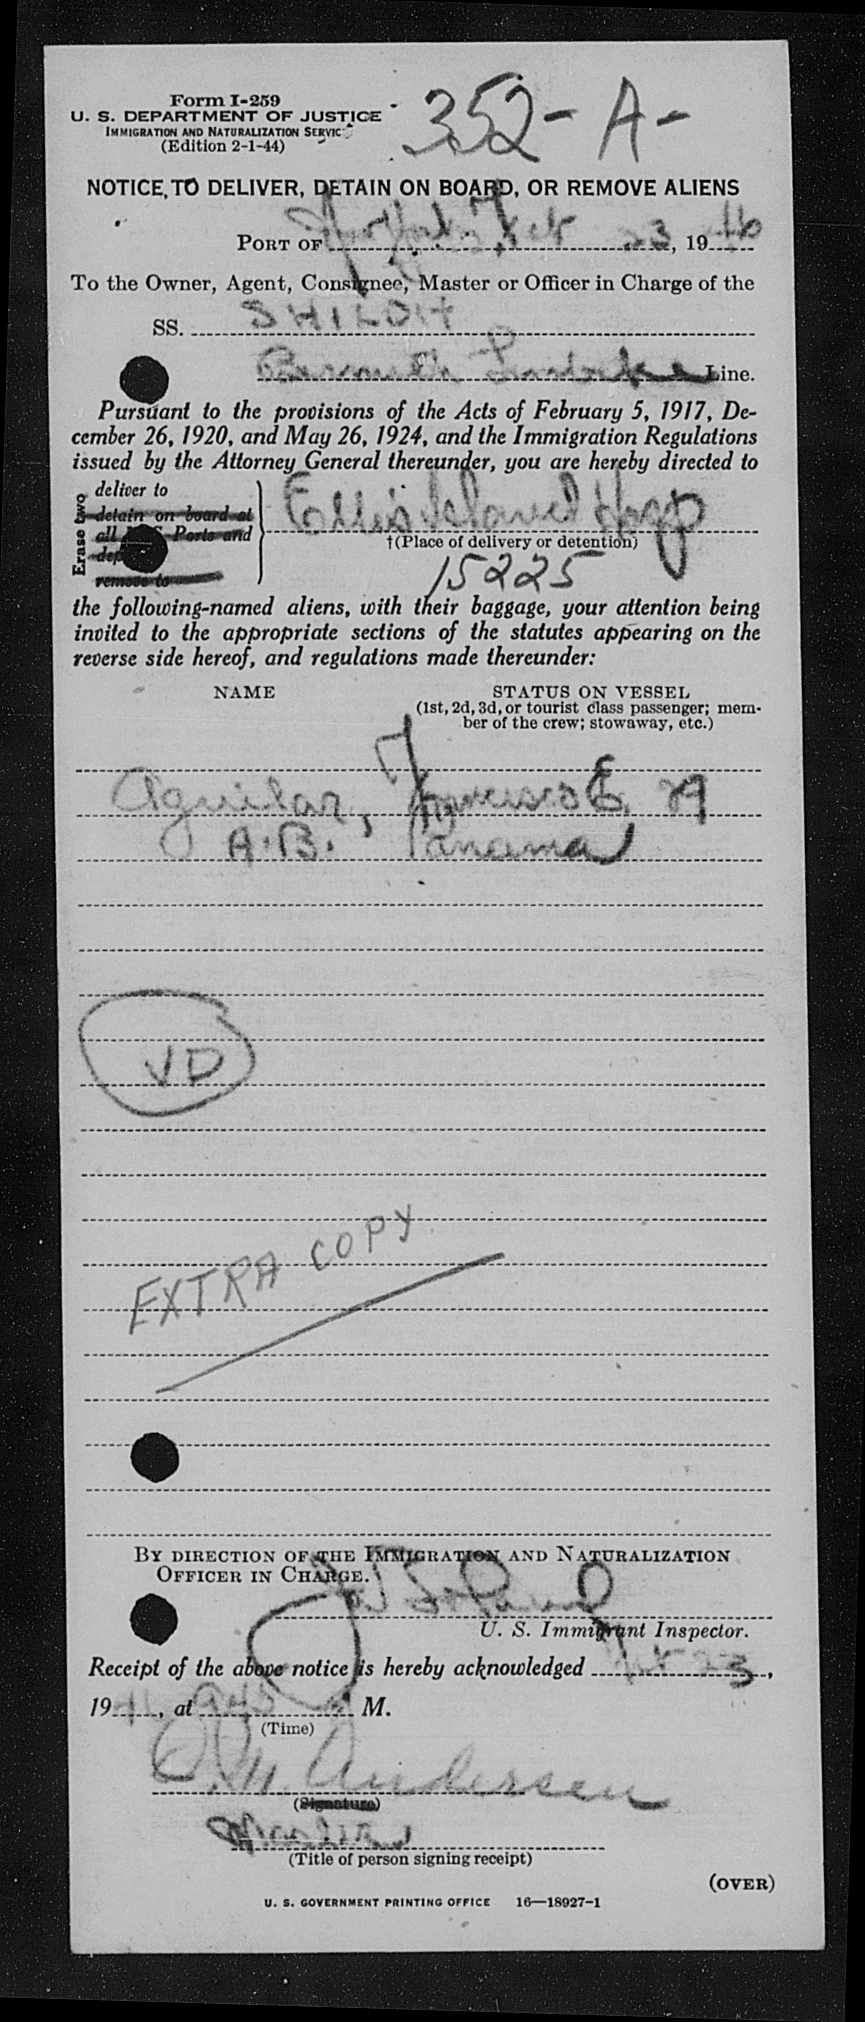 Form I-259
U. S. DEPARTMENT OF JUSTICE
IMMIGRATION AND NATURALIZATION SERVICE
(Edition 2-1-44)
352-A-
NOTICE TO DELIVER, DETAIN ON BOARD, OR REMOVE ALIENS
PORT OF New York, Feb 23, 1946
To the Owner, Agent, Consignee, Master or Officer in Charge of the
SS. SHILOH
Line.
Pursuant to the provisions of the Acts of February 5, 1917, De-
cember 26, 1920, and May 26, 1924, and the Immigration Regulations
issued by the Attorney General thereunder, you are hereby directed to
Erase two
deliver to
detain on board at
all U S Ports and
remove to
Ellis Island Hosp
†(Place of delivery or detention)
15225
the following-named aliens, with their baggage, your attention being
invited to the appropriate sections of the statutes appearing on the
reverse side hereof, and regulations made thereunder:
NAME
STATUS ON VESSEL
(1st, 2d, 3d, or tourist class passenger; mem-
ber of the crew; stowaway, etc.)
Aguilar, Francisco E. 29
A.B. Panama
VD
EXTRA COPY
BY DIRECTION OF THE IMMIGRATION AND NATURALIZATION
OFFICER IN CHARGE.
U. S. Immigrant Inspector.
Receipt of the above notice is hereby acknowledged Feb 23,
19 , at 945 A M.
(Time)
Andersen
(Signature)
(Title of person signing receipt)
(OVER)
U. S. GOVERNMENT PRINTING OFFICE 16—18927-1